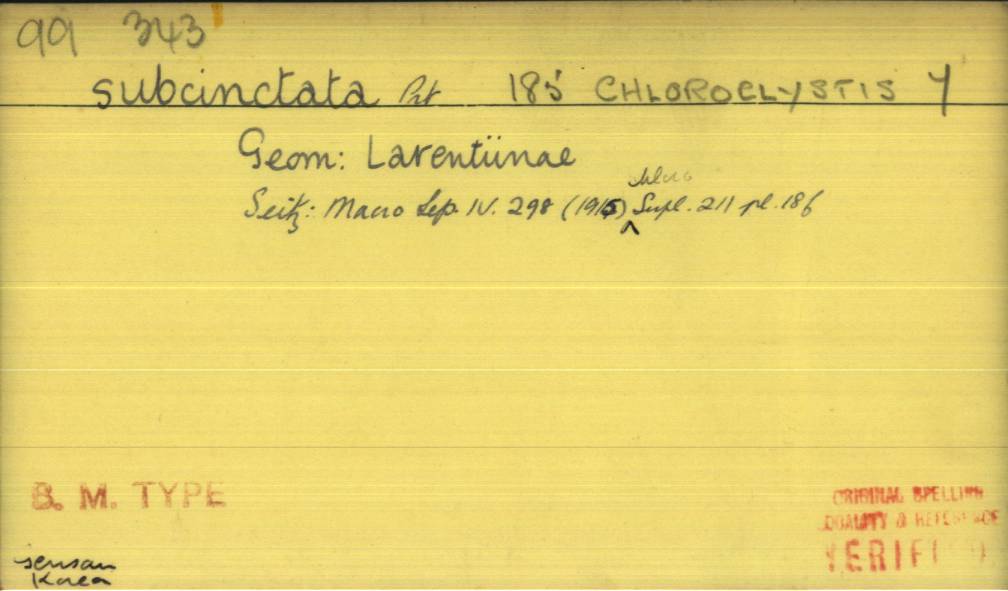 99 343
subcinctata Prt 185 CHLOROCLYSTIS Y
Geom: Larentiinae
Seitz: Macro Lep. IV. 298 (1915) Supl. 211 pl. 18f
B. M. TYPE
ORIGINAL SPELLING
LOCALITY & REFERENCE
VERIFIED
Jensan
Korea